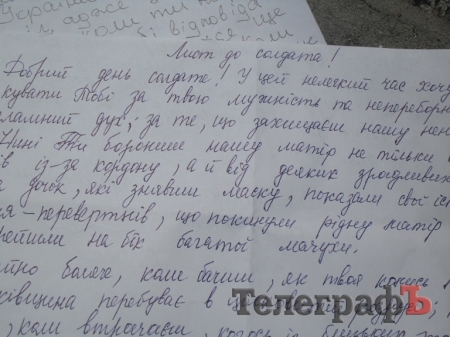 Україн
, адже
поли ти н
бі відповіда
Лист до солдата!
Добрий день солдате! У цей нелегкий час хочу
кувати Тобі за твою мужність та непереборн
ламний дух; за те, що захищаєш нашу нень
Нині Ти борониш нашу матір не тільки
ів із-за кордону, а й від деяких зрадливих
а дочок, які знявши маску, показали свої іс
я-перевертнів, що покинули рідну матір
рейшли на бік багатої мачухи.
боляче, коли бачиш, як твоя колись
ківщина перебуває в
, коли втрачаєш когось із близьких
ТелеграфЪ